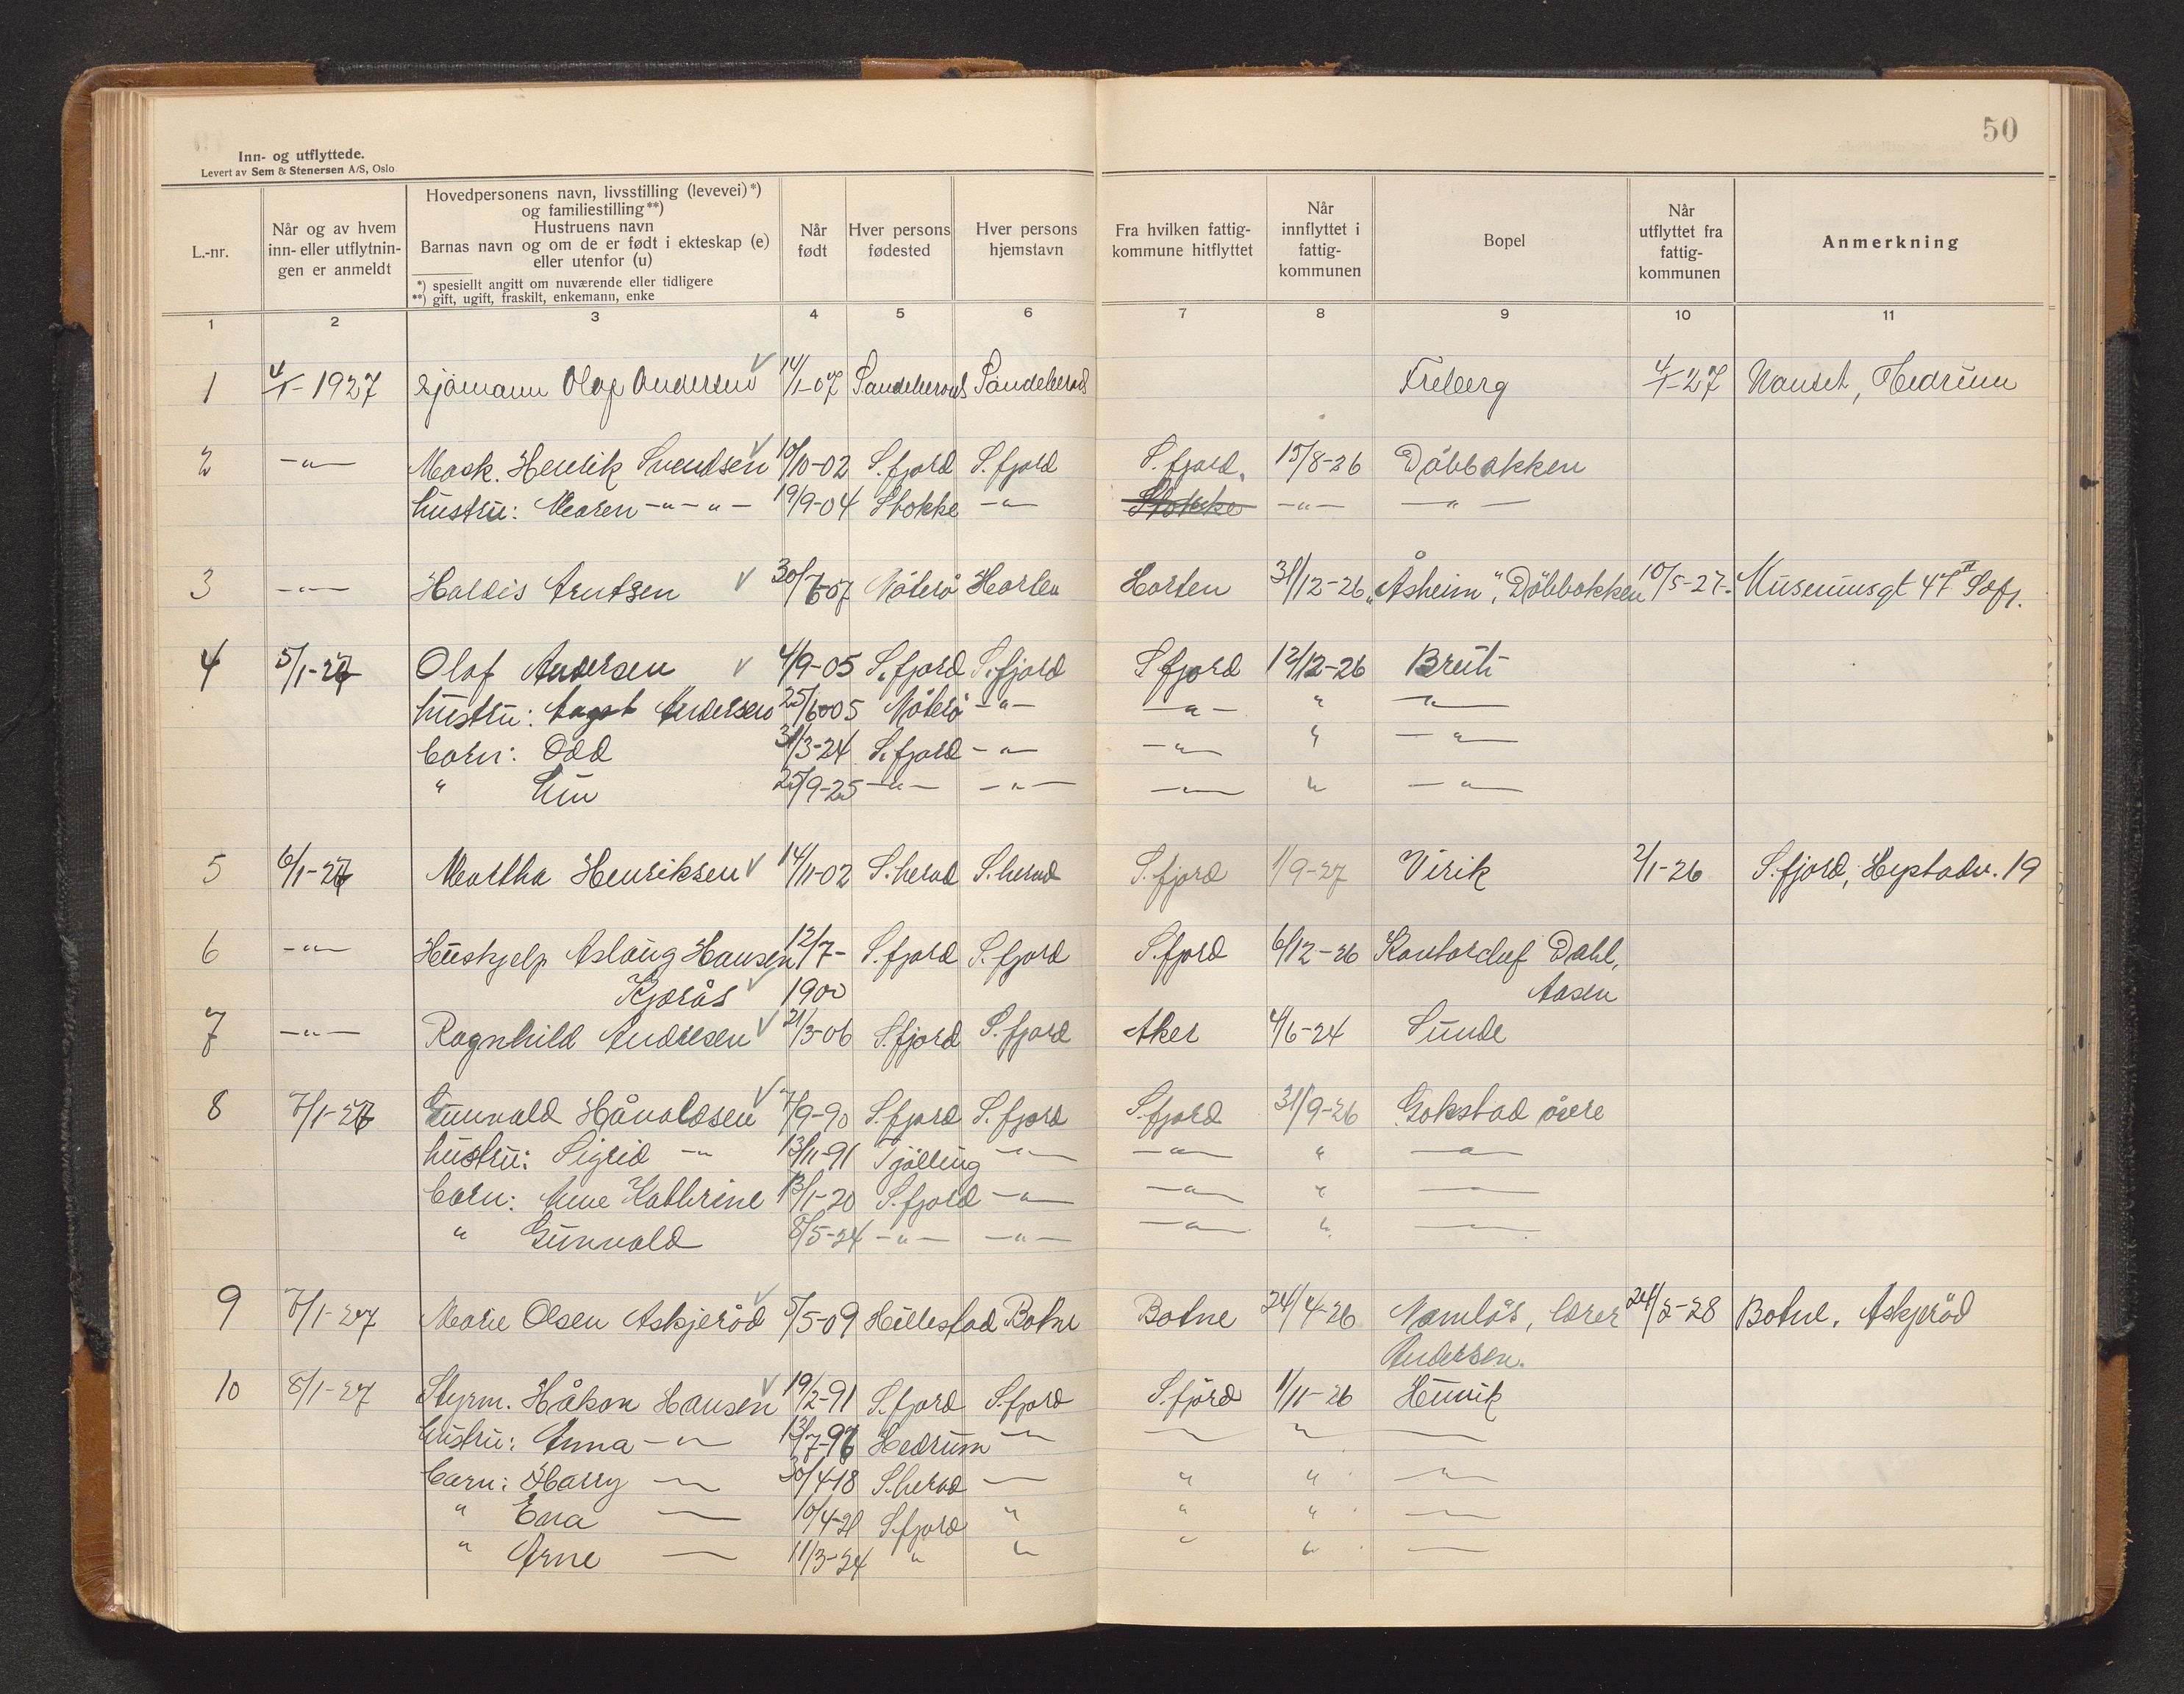 50
Inn- og utflyttede.
Levert av Sem & Stenersen A/S, Oslo
L.-nr.
Når og av hvem inn- eller utflytnin- gen er anmeldt
Hovedpersonens navn, livsstilling (levevei)*)
og familiestilling**)
Hustruens navn
Barnas navn og om de er født i ekteskap (e)
eller utenfor (u)
*) spesiellt angitt om nuværende eller tidligere
**) gift, ugift, fraskilt, enkemann, enke
Når født
Hver persons fødested
Hver persons hjemstavn
Fra hvilken fattig- kommune hitflyttet
Når innflyttet i fattig- kommunen
Bopel
Når utflyttet fra fattig- kommunen
Anmerkning
1 2 3 4 5 6 7 8 9 10 11
1 4/1-1927 Sjömann Olaf Andersen 14/1-07 Sandeherad Sandeherad Freberg 4/1-27 Nanset, Hedrum
2 -"- Mask. Henrik Svendsen 10/10-02 S.fjord S.fjord S.fjord 15/8-26 Döbbakken
hustru: Maren -"-"- 19/9-04 Stokke -"- Stokke -"- -"-
3 -"- Haldis Arntsen 30/7-07 Nöterö Horten Horten 31/12-26 "Åsheim", Döbbakken 10/5-27 Museumsgt 47 II Sofj.
4 5/1-27 Olaf Andersen 4/9-05 S.fjord S.fjord S.fjord 12/12-26
hustru: Andersen 25/6-05 Nöterö -"- -"- " -"-
barn: Odd 31/3-24 S.fjord -"- -"- " -"-
" 25/9-25 -"- -"- -"- " -"-
5 6/1-27 Martha Henriksen 14/11-02 S.herad S.herad S.fjord 1/9-27 Virik 2/1-26 S.fjord, Hystadv. 19
6 -"- Hushjelp Aslaug Hansen 12/7- S.fjord S.fjord S.fjord 6/12-26 Kontorchef Dahl,
Kjærås 1900 Aasen
7 -"- Ragnhild Andresen 21/3-06 S.fjord S.fjord Aker 4/6-24 Sunde
8 7/1-27 Gunvald Håvaldsen 7/9-90 S.fjord S.fjord S.fjord 31/9-26 Gokstad övre
hustru: Sigrid -"- 13/11-91 Tjölling -"- -"- " -"-
barn: Anne Kathrine 13/1-20 S.fjord -"- -"- " -"-
" Gunvald 8/5-24 -"- -"- -"- " -"-
9 7/1-27 Marie Olsen Askjeröd 5/5-09 Hillestad Botne Botne 24/4-26 Namlös, lærer 24/2-28 Botne, Askjeröd
Andersen.
10 8/1-27 Styrm. Håkon Hansen 19/2-91 S.fjord S.fjord S.fjord 1/11-26 Hunvik
hustru: Anna -"- 13/7-96 Hedrum -"- -"- -"- -"-
barn: Harry -"- 30/4-18 S.herad -"- " " -"-
" Ena -"- 10/4-21 S.fjord " " " -"-
" Arne -"- 11/3-24 " " " " -"-